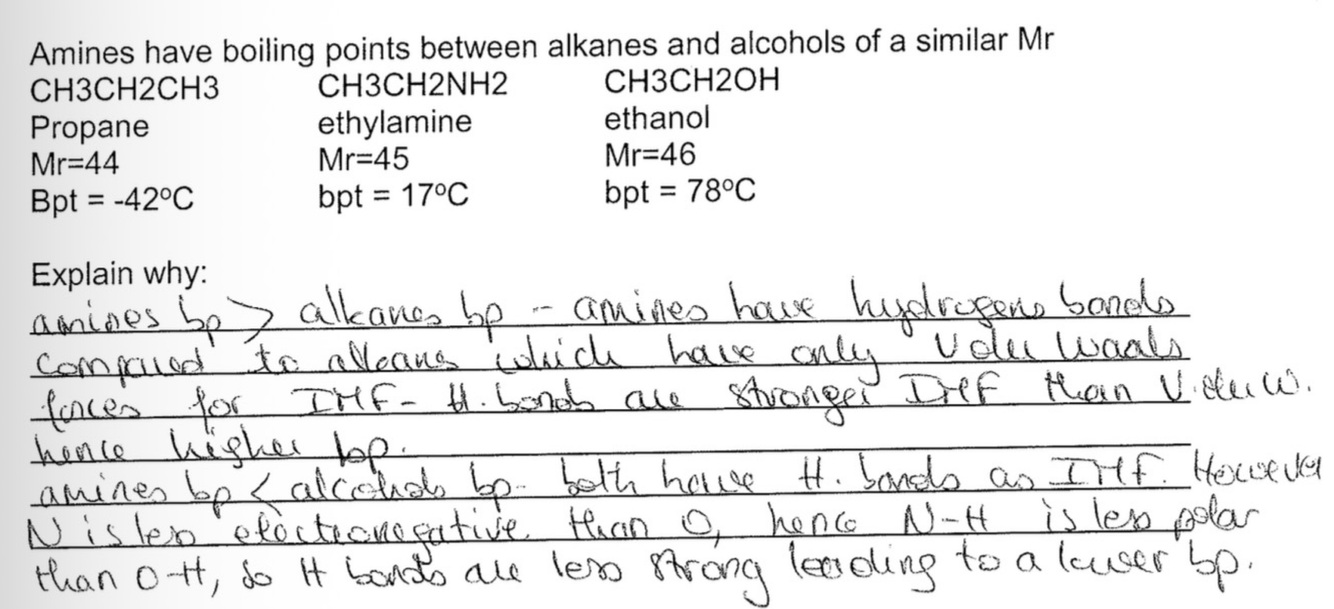 Amines have boiling points between alkanes and alcohols of a similar Mr
CH3CH2CH3 CH3CH2NH2 CH3CH2OH
Propane ethylamine ethanol
Mr=44 Mr=45 Mr=46
Bpt = -42ºC bpt = 17ºC bpt = 78ºC
Explain why:
amines bp > alkanes bp - amines have hydrogens bonds
compared to alkans which have only V der Waals
forces for IMF - H. bonds are stronger IMF than V. der W.
hence higher bp.
amines bp < alcohols bp - both have H. bonds as IMF. However
N is less electronegative than O, hence N-H is less polar
than O-H, so H bonds are less strong leading to a lower bp.